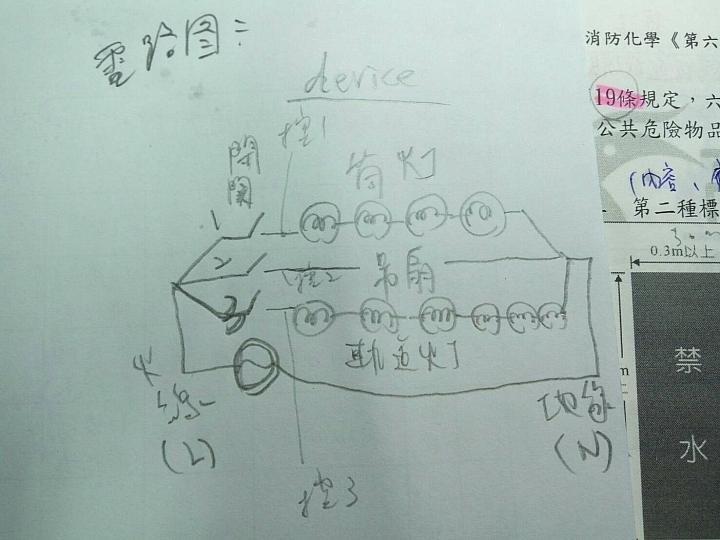 電路图：
device
控1
開關
筒灯
1
2
控2
吊扇
3
軌道灯
火線
(L)
地線
(N)
控3
消防化學《第六
19條規定，六
公共危險物品
(內容、
第二種標
0.3m以上
m
禁
水